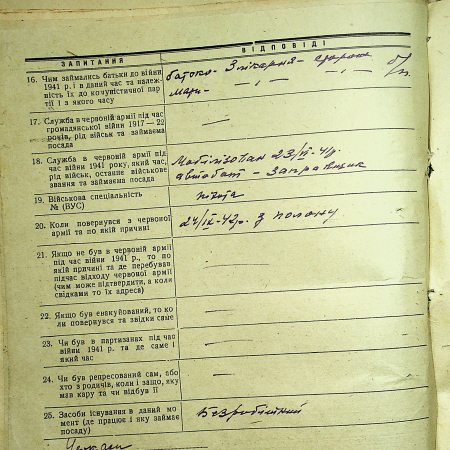 ЗАПИТАННЯ
ВІДПОВІДІ
16. Чим займались батьки до війни
1941 р. і в даний час та належ-
ність їх до комуністичної пар-
тії і з якого часу
батько-
мати-
17. Служба в червоній армії під час
громадянської війни 1917—22
років, рід військ та займаєма
посада
—
18. Служба в червоній армії під
час війни 1941 року, який час,
рід військ, останнє військове
звання та займаєма посада
Мобілізован 23/VI-41р.
автобат - Заправщик
19. Військова спеціальність
№ (ВУС)
піхота
20. Коли повернувся з червоної
армії та по якій причині
24/IX-42р. з полону
21. Якщо не був в червоній армії
під час війни 1941 р., то по
якій причині та де перебував
підчас відходу червоної армії
(чим може підтвердити, а коли
свідками то їх адреса)
—
22. Якщо був евакуйований, то ко-
ли повернувся та звідки саме
—
23. Чи був в партизанах під час
війни 1941 р. та де саме і
який час
—
24. Чи був репресований сам, або
хто з родичів, коли і защо, яку
мав кару та чи відбув її
—
25. Засоби існування в даний мо-
мент (де працює і яку займає
посаду)
Безробітний